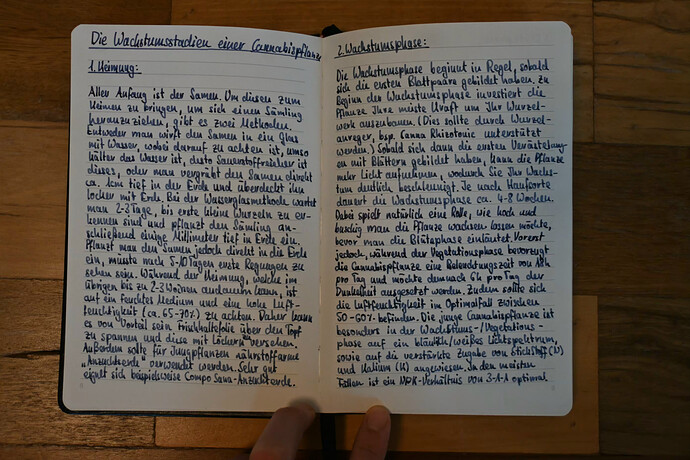 Die Wachstumsstadien einer Cannabispflanze
1. Keimung:
Aller Anfang ist der Samen. Um diesen zum
Keimen zu bringen, um sich einen Sämling
heranzuziehen, gibt es zwei Methoden.
Entweder man wirft den Samen in ein Glas
mit Wasser, wobei darauf zu achten ist, umso
kälter das Wasser ist, desto Sauerstoffreicher ist
dieses, oder man vergräbt den Samen direkt
ca. 1cm tief in der Erde und überdeckt ihn
locker mit Erde. Bei der Wasserglasmethode wartet
man 2-3 Tage, bis erste kleine Wurzeln zu er-
kennen sind und pflanzt den Sämling an-
schließend einige Millimeter tief in Erde ein.
Pflanzt man den Samen jedoch direkt in die Erde
ein, müsste nach 5-10 Tagen erste Regungen zu
sehen sein. Während der Keimung, welche im
übrigen bis zu 2-3 Wochen andauern kann, ist
auf ein feuchtes Medium und eine hohe Luft-
feuchtigkeit (ca. 65-70%) zu achten. Daher kann
es von Vorteil sein Frischhaltefolie über den Topf
zu spannen und diese mit Löchern versehen.
Außerdem sollte für Jungpflanzen nährstoffarme
"Anzuchterde" verwendet werden. Sehr gut
eignet sich beispielsweise Compo Sana-Anzuchterde.
2. Wachstumsphase:
Die Wachstumsphase beginnt in Regel, sobald
sich die ersten Blattpaare gebildet haben. Zu
Beginn der Wachstumsphase investiert die
Pflanze Ihre meiste Kraft um Ihr Wurzel-
werk auszubauen. (Dies sollte durch Wurzel-
anreger, bsp. Canna Rhizotonic unterstützt
werden.) Sobald sich dann die ersten Verästelung-
en mit Blättern gebildet haben, kann die Pflanze
mehr Licht aufnehmen, wodurch sie Ihr Wachs-
tum deutlich beschleunigt. Je nach Hanfsorte
dauert die Wachstumsphase ca. 4-8 Wochen.
Dabei spielt natürlich eine Rolle, wie hoch und
buschig man die Pflanze wachsen lassen möchte,
bevor man die Blütephase einläutet. Vorerst
jedoch, während der Vegetationsphase bevorzugt
die Cannabispflanze eine Beleuchtungszeit von 18h
pro Tag und möchte demnach 6h pro Tag der
Dunkelheit ausgesetzt werden. Zudem sollte sich
die Luftfeuchtigkeit im Optimalfall zwischen
50-60% befinden. Die junge Cannabispflanze ist
besonders in der Wachstums-/Vegetations-
phase auf ein bläulich/weißes Lichtspektrum,
sowie auf die verstärkte Zugabe von Stickstoff (N)
und Kalium (K) angewiesen. In den meisten
Fällen ist ein NPK-Verhältnis von 3-1-1 optimal